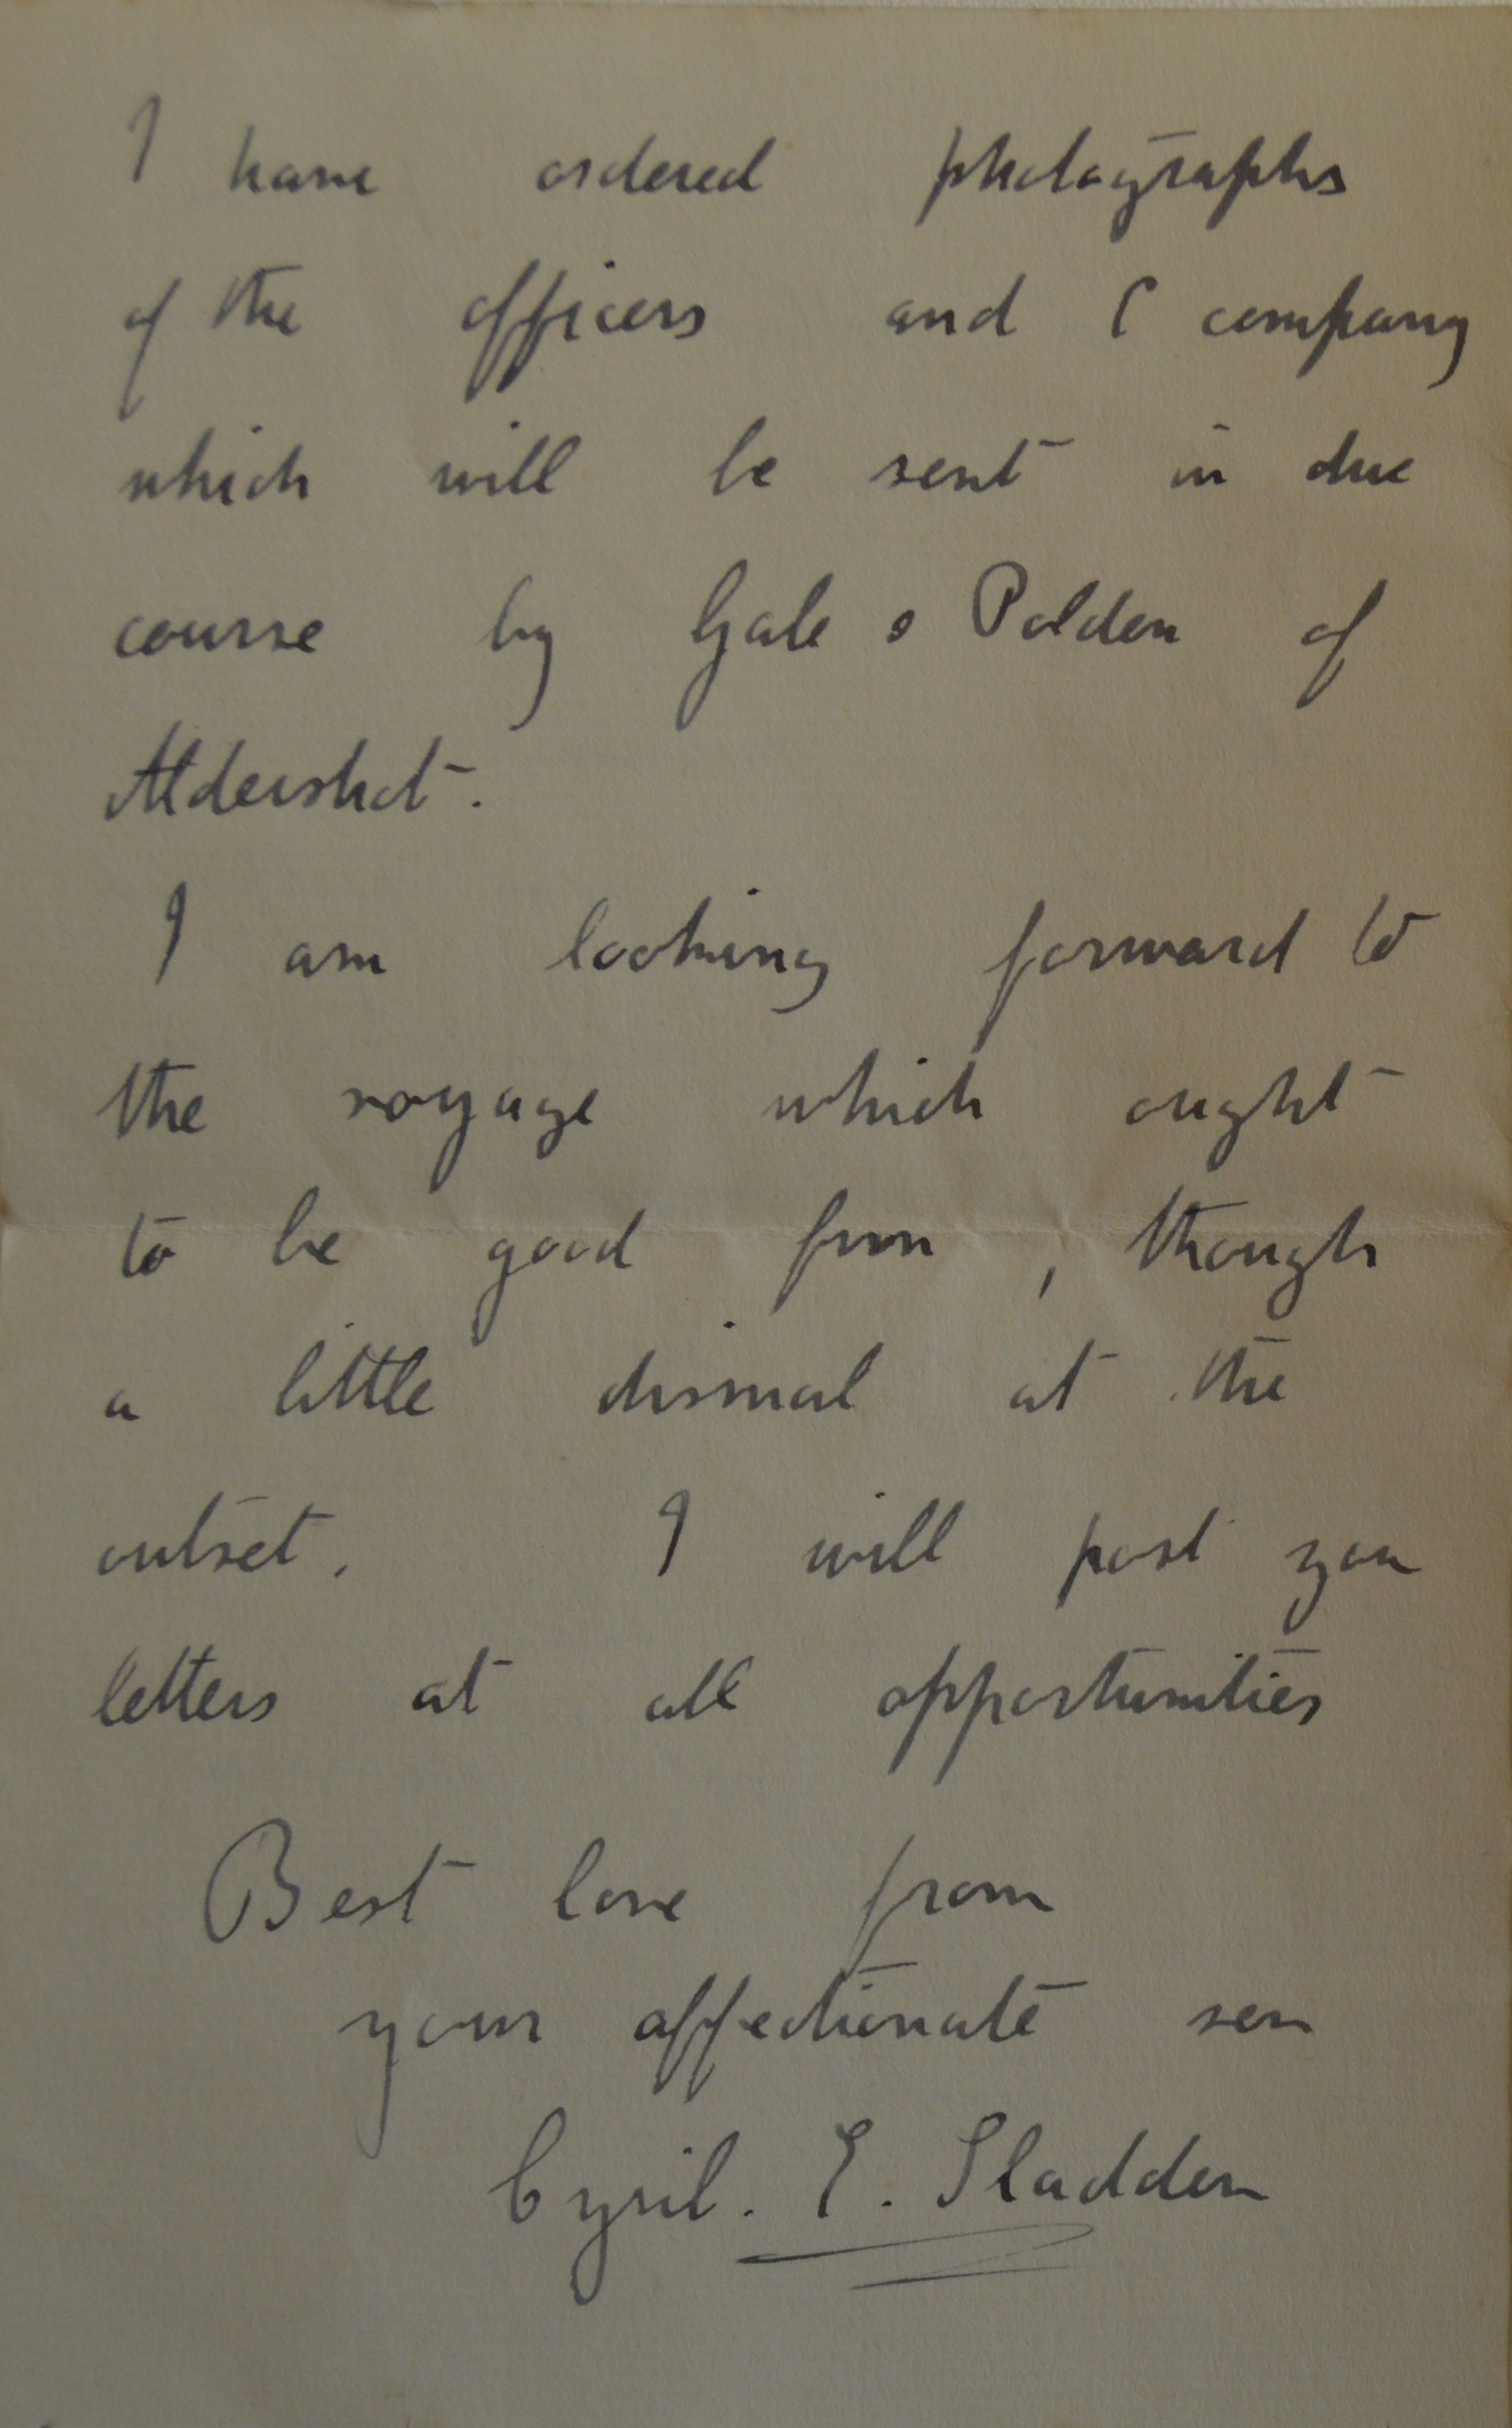 I have ordered photographs
of the officers and C company
which will be sent in due
course by Gale & Polden of
Aldershot.
I am looking forward to
the voyage which ought
to be good fun, though
a little dismal at the
outset. I will post you
letters at all opportunities
Best love from
your affectionate son
Cyril. E. Sladden